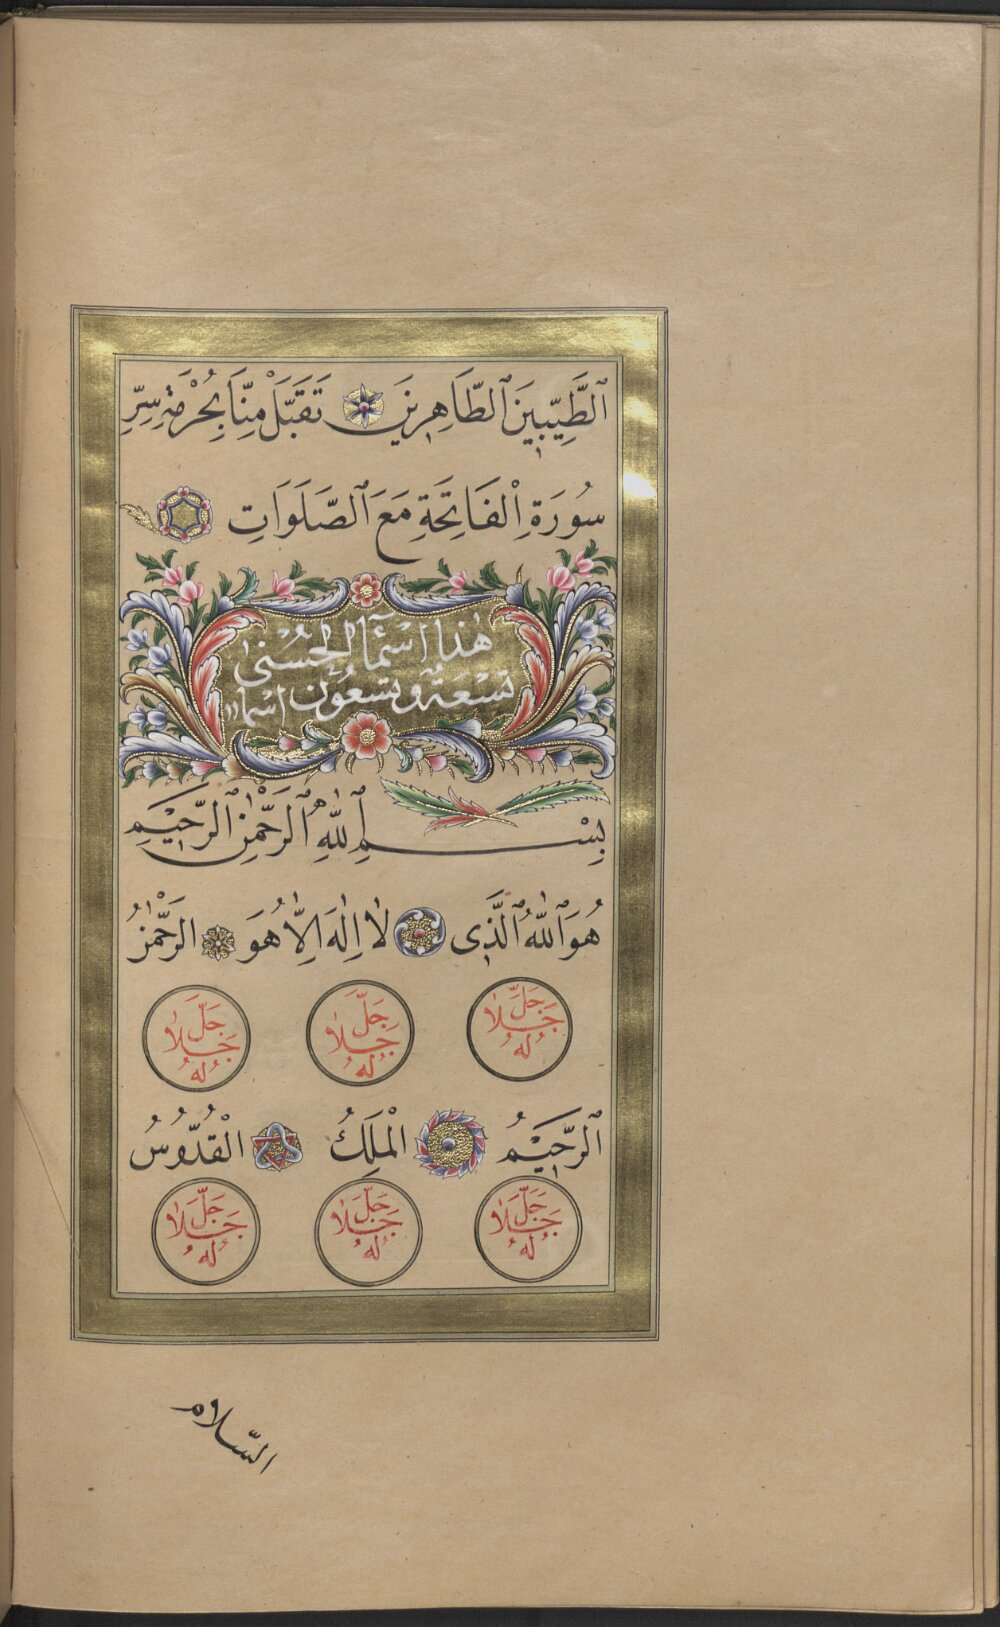 ٱلطَّيِّبِينَ ٱلطَّاهِرِينَ تَقَبَّلْ مِنَّا بِحُرْمَةِ سِرِّ
سُورَةِ ٱلْفَاتِحَةِ مَعَ ٱلصَّلَوَاتِ
هٰذَا اِسْمَٓاءُ الْحُسْنٰى
تِسْعَةٌ وَتِسْعُونَ اِسْمًا
بِسْمِ ٱللّٰهِ ٱلرَّحْمٰنِ ٱلرَّحِيمِ
هُوَ ٱللّٰهُ ٱلَّذِى لَا اِلٰهَ اِلَّا هُوَ الرَّحْمٰنُ
جَلَّ جَلَالُهُ جَلَّ جَلَالُهُ جَلَّ جَلَالُهُ
ٱلرَّحِيمُ الْمَلِكُ الْقُدُّوسُ
جَلَّ جَلَالُهُ جَلَّ جَلَالُهُ جَلَّ جَلَالُهُ
السَّلَام